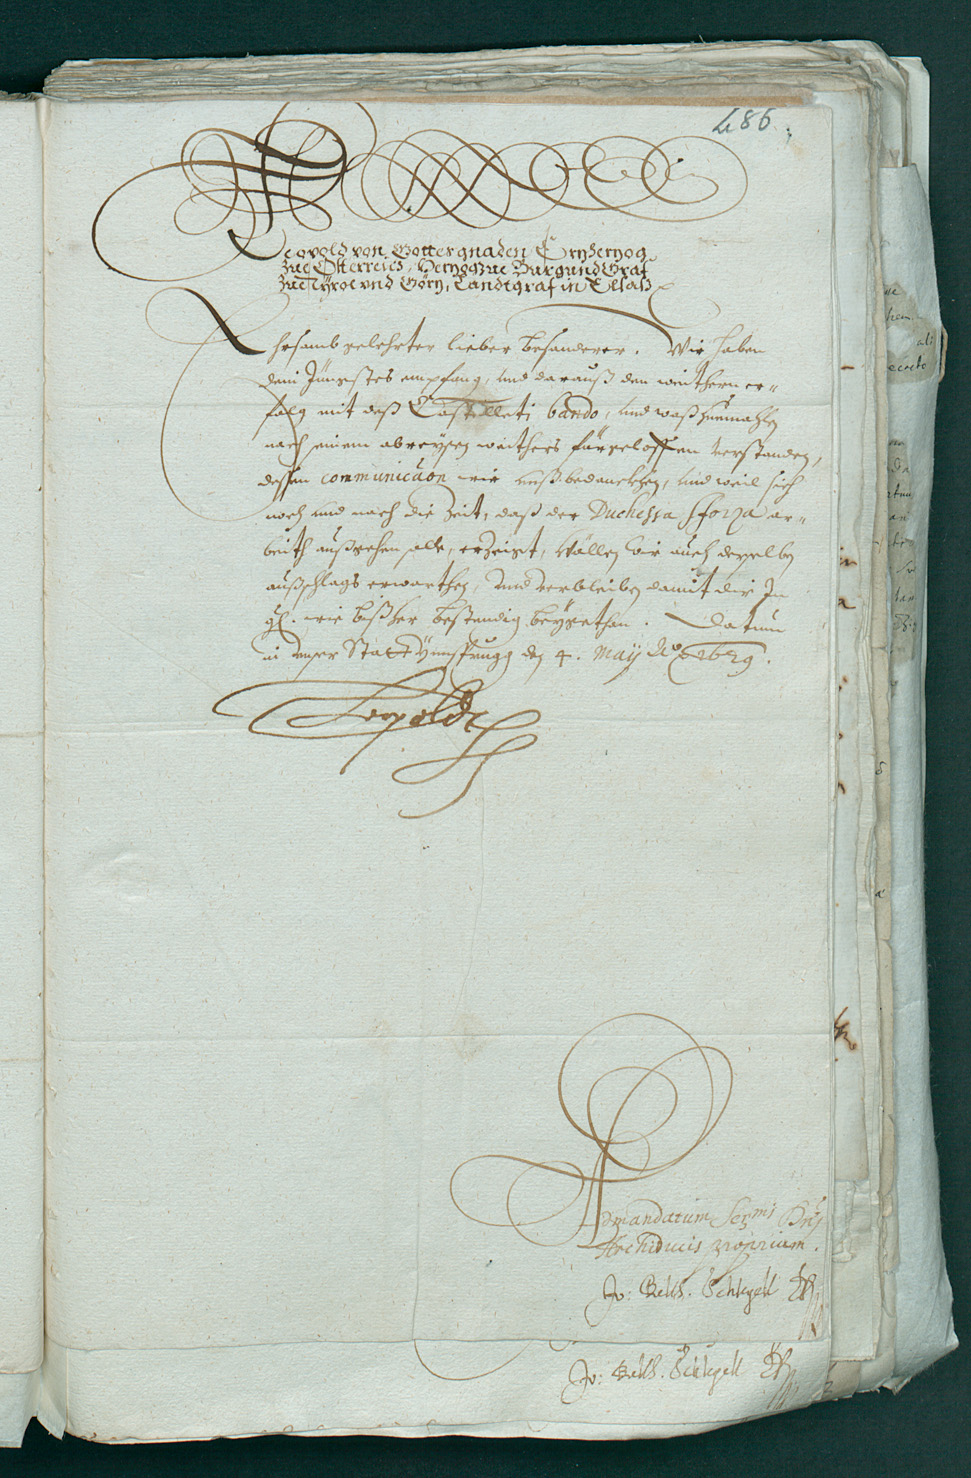 486.
Leopold von Gottes gnaden Ertzhertzog
zue Österreich, Hertzog zue Burgund Graf
zue Tÿrol vnd Görtz, Landtgraf in Elsaß
Ehrsamb gelehrter lieber besonderer. Wir haben
dein Jüngstes empfang, vnd darauß den weithern er-
folg mit deß Castelleti bando, vnd waß
nach seinem abreysen weithers fürgeloffen verstanden,
dessen communicaon wir vnß bedanckhen, vnd weil sich
noch vnd nach die Zeit, daß der Duchessa Sforza ar-
beith außgehen solle, erzeigt, Wöllen wir auch desselben
außschlags erwarthen, vnd verbleiben damit dir In
gd. wie bißher bestendig beÿgethan. Datum
in vnser Statt Ÿnsprugg den 4. Maÿ Ao 1629.
Leopold
Ad mandatum Sermi Dni
Archiducis proprium.
Jo: Bath. Schlegell
Jo: Bath. Schlegell